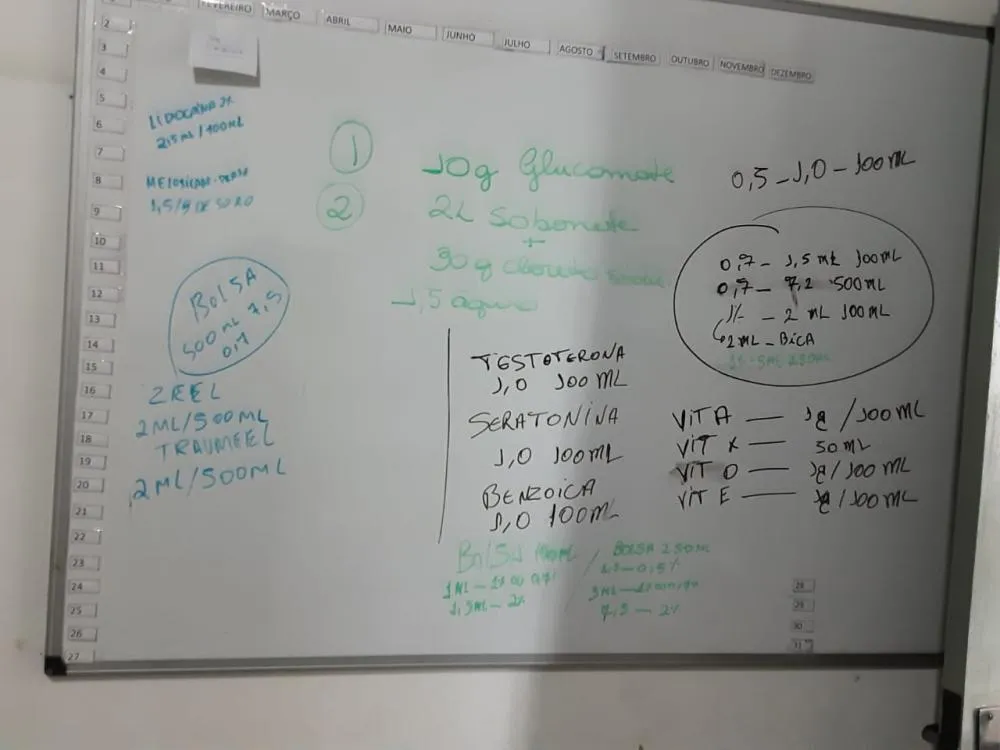 FEVEREIRO
MARÇO
ABRIL
MAIO
JUNHO
JULHO
AGOSTO
SETEMBRO
OUTUBRO
NOVEMBRO
DEZEMBRO
2
3
4
5
6
7
8
9
10
11
12
13
14
15
16
17
18
19
20
21
22
23
24
25
26
27
LIDOCAINA 2%
2,5 ML/100ML
1,5/9 DE SORO
BOLSA
500 ML 7,5
0,7
ZEEL
2ML/500ML
TRAUMEEL
2ML/500ML
1
10g Gluconate
2
2L Sobonete
+
30g
1,5 água
0,5 - 1,0 - 100 ML
0,7 - 1,5 ML 100ML
0,7 - 7,2 500ML
1% - 2 ML 100ML
2ML - BICA
TESTOTERONA
1,0 100 ML
SERATONINA
1,0 100ML
BENZOICA
1,0 100ML
VIT A — 1g /100ML
VIT K — 50 ML
VIT D — 1g/100ML
VIT E — 1g/100ML
BOLSA 100ML / BOLSA 250ML
1 ML - 1% OU 0,7%
1,5ML - 2%
7,5 - 2%
28
29
30
31